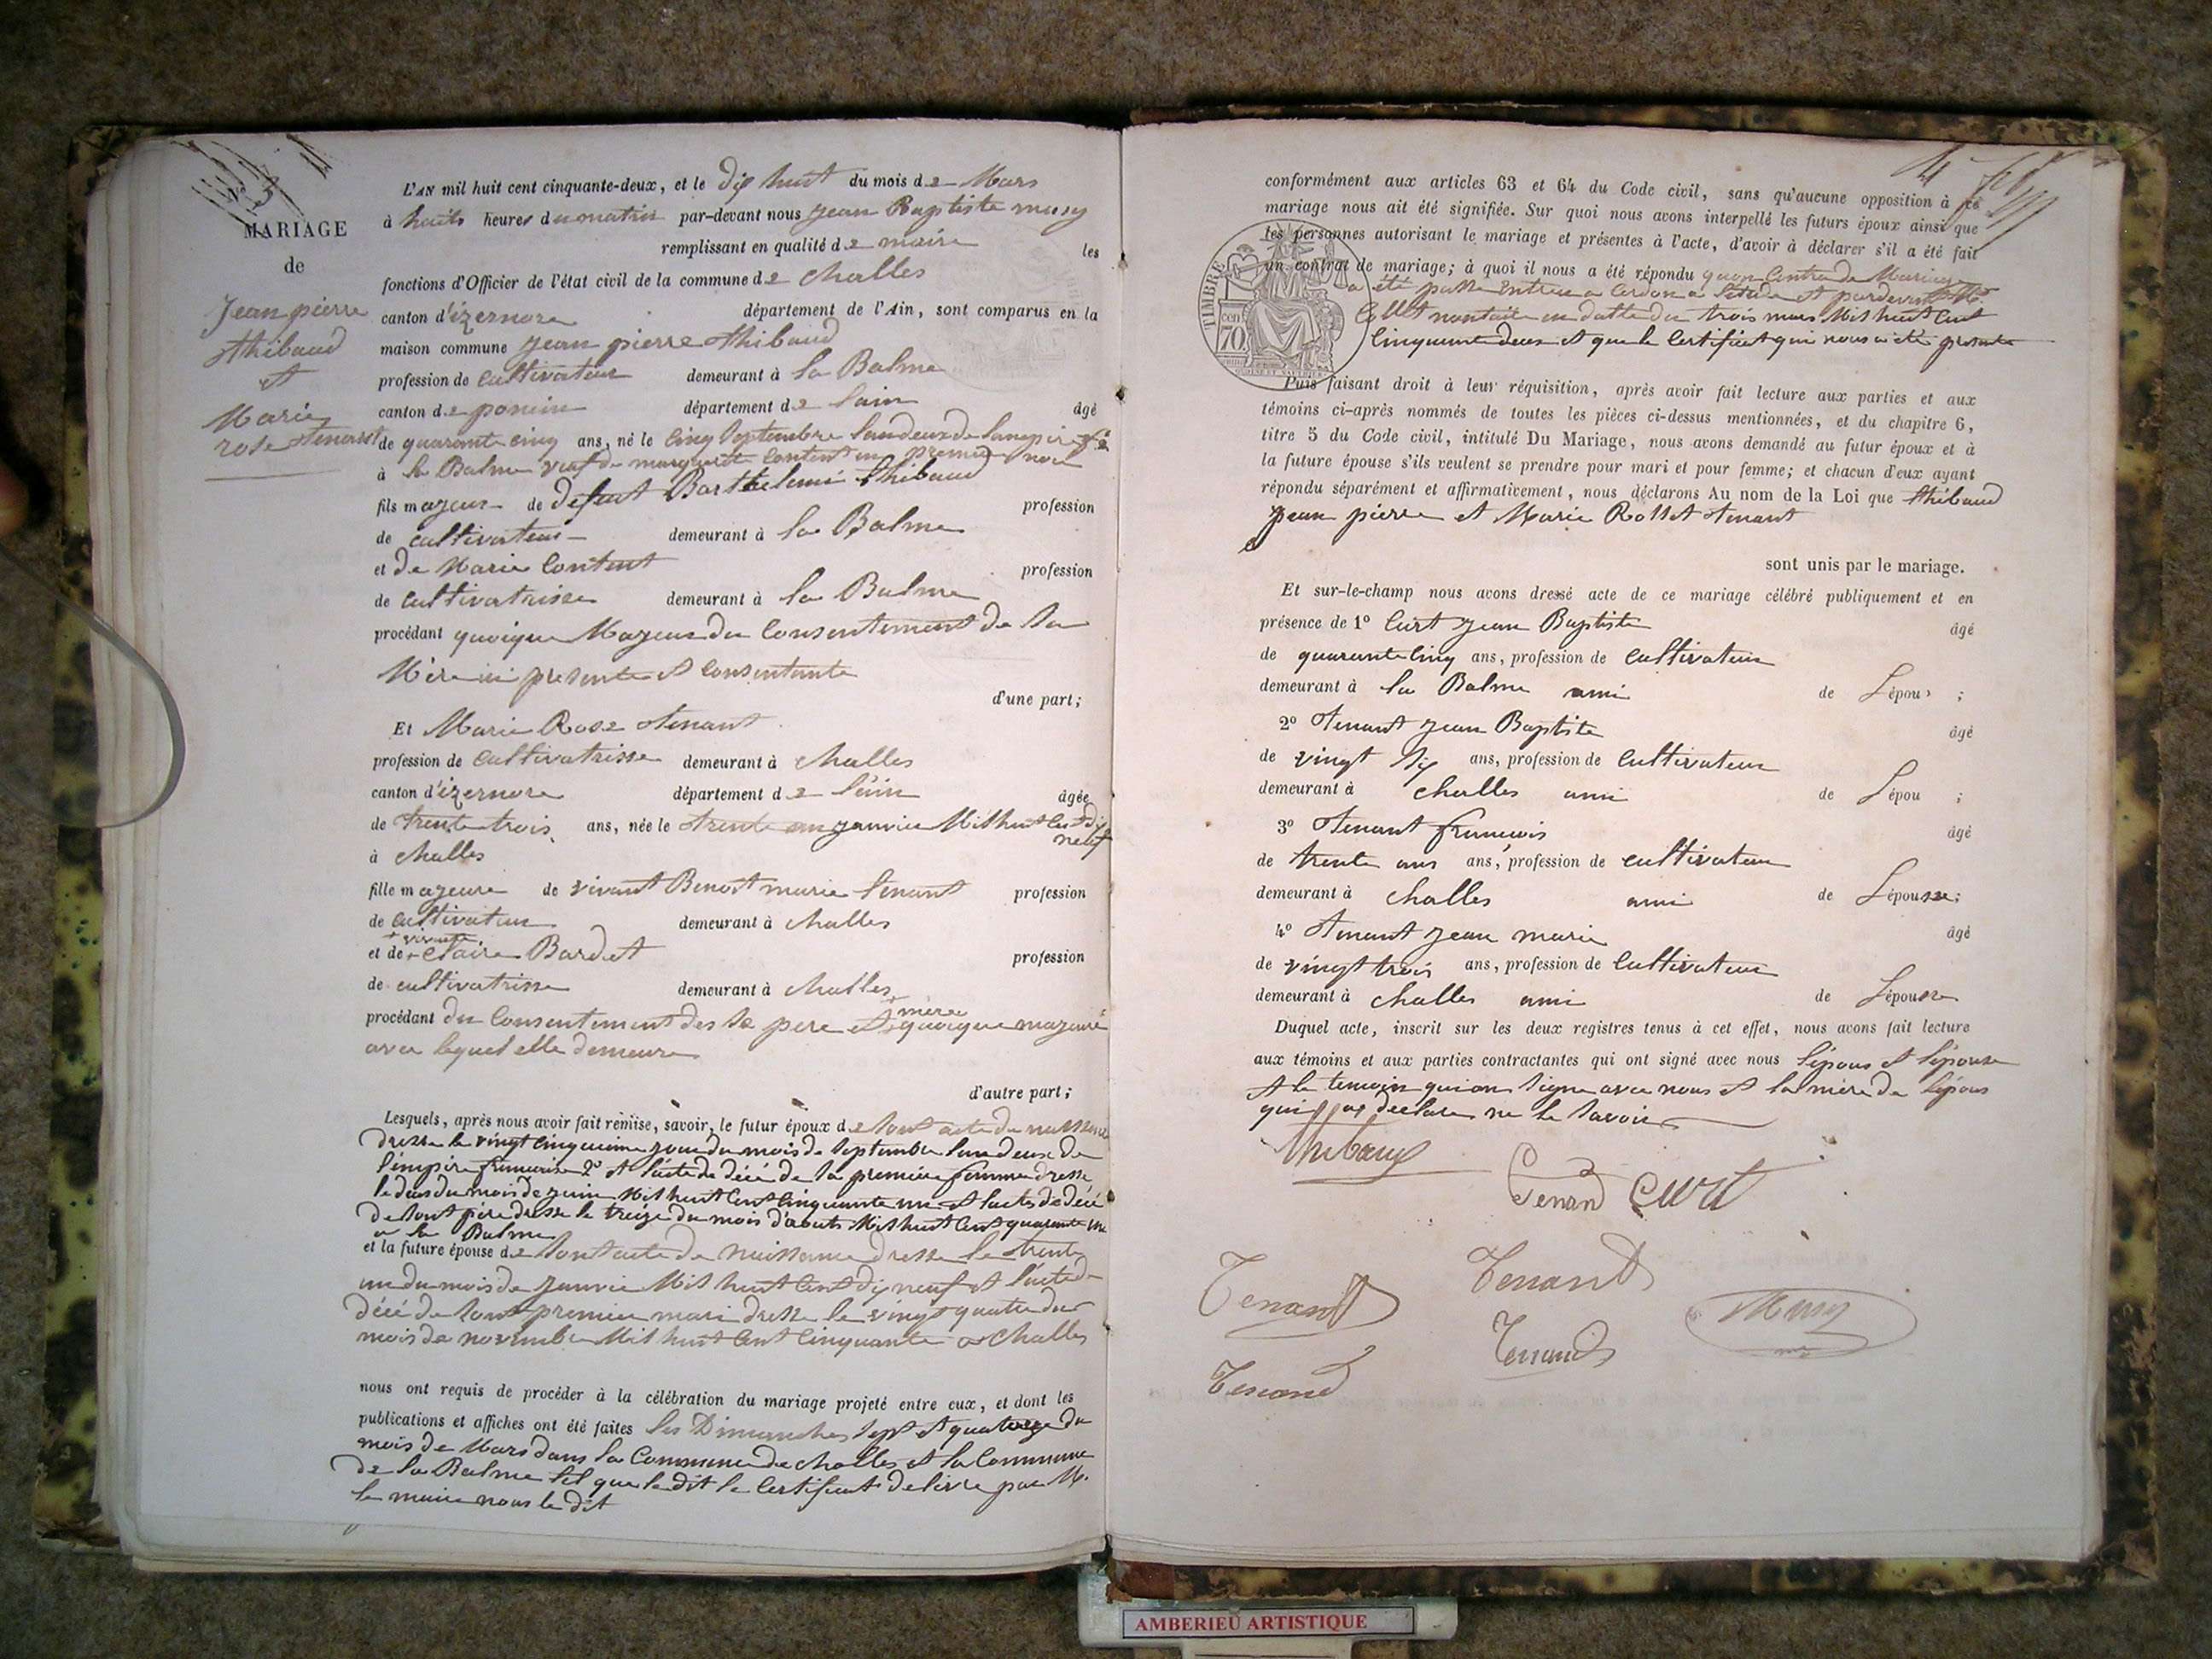 N° 3
MARIAGE
de
Jean pierre
thibaud
et
Marie
rose tenant
L'AN mil huit cent cinquante-deux, et le dix huit du mois de Mars
à huits heures du matin par-devant nous Jean Baptiste musy
remplissant en qualité de maire les
fonctions d'Officier de l'état civil de la commune de Challes
canton d'izernore département de l'Ain, sont comparus en la
maison commune Jean pierre thibaud
profession de cultivateur demeurant à la Balme
canton de poncin département de lain âgé
de quarante cinq ans, né le cinq Septembre lan deux de lanpire
à la Balme veuf de marguerite Content en premier
fils majeur de defunt Barthelemi thibaud profession
de cultivateur demeurant à la Balme
et de Marie Content profession
de cultivatrisse demeurant à la Balme
procédant quoique Majeur du Consentement de Sa
Mère ici presente et Consentante
d'une part;
Et Marie Rose tenant
profession de Cultivatrisse demeurant à Challes
canton d'izernore département de l'ain âgée
de trente trois ans, née le trente un janvier Mil huit Cent dix
neuf
à Challes
fille majeure de vivant Benoit marie tenant profession
de cultivateur demeurant à Challes
+ vivante
et de + Claire Bardet profession
de cultivatrisse demeurant à Challes
+ mère
procédant du Consentement des Se pere et + quoique majeure
avec lequel elle demeure
d'autre part;
Lesquels, après nous avoir fait remise, savoir, le futur époux de Sont acte de naissance
dressé le vingt cinquieme jour du mois de Septembre lan deux de
l'empire francaise 2° et l'acte de décé de Sa premiere femme dressé
le deux du mois de juin Mil huit Cent Cinquante un et l'acte de décé
de Sont père dressé le treize du mois d'aouts Mil huit Cent quarante un
a la Balme
et la future épouse de Sont acte de naissance dressé le trente
un du mois de Janvier Mil huit Cent dix neuf et l'acte de
décé de Sont premier mari dressé le vingt quatre du
mois de novembre Mil huit Cent Cinquante a Challes
nous ont requis de procéder à la célébration du mariage projeté entre eux, et dont les
publications et affiches ont été faites les Dimanches Sept et quatorze du
mois de Mars dans la Commune de Challes et la Commune
de la Balme tel que le dit le Certificat delivré par M.
le maire nous le dit
4
conformément aux articles 63 et 64 du Code civil, sans qu'aucune opposition à ce
mariage nous ait été signifiée. Sur quoi nous avons interpellé les futurs époux ainsi que
les personnes autorisant le mariage et présentes à l'acte, d'avoir à déclarer s'il a été fait
un contrat de mariage; à quoi il nous a été répondu quon Contra de Mariage
a été passé entreu a Cerdon a l'etude et pardevant M.
Collet nontaire en datte du trois mars Mil huit Cent
Cinquante deux et que le Certificat qui nous a été presenté
TIMBRE
70 cen
Puis faisant droit à leur réquisition, après avoir fait lecture aux parties et aux
témoins ci-après nommés de toutes les pièces ci-dessus mentionnées, et du chapitre 6,
titre 5 du Code civil, intitulé Du Mariage, nous avons demandé au futur époux et à
la future épouse s'ils veulent se prendre pour mari et pour femme; et chacun d'eux ayant
répondu séparément et affirmativement, nous déclarons Au nom de la Loi que thibaud
jean pierre et Marie Rosse tenant
sont unis par le mariage.
Et sur-le-champ nous avons dressé acte de ce mariage célébré publiquement et en
présence de 1° Curt Jean Baptiste âgé
de quarante Cinq ans, profession de Cultivateur
demeurant à la Balme ami de Lépoux ;
2° tenant Jean Baptiste âgé
de vingt Six ans, profession de Cultivateur
demeurant à Challes ami de Lépou ;
3° tenant francois âgé
de trente ans ans, profession de cultivateur
demeurant à Challes ami de Lépouse;
4° tenant Jean marie âgé
de vingt trois ans, profession de Cultivateur
demeurant à Challes ami de Lépouse
Duquel acte, inscrit sur les deux registres tenus à cet effet, nous avons fait lecture
aux témoins et aux parties contractantes qui ont signé avec nous lépous et lépouse
et le temoins qui on Signe avec nous et la mère de lépous
qui a declare ne le Savoir
thibaud
Tenand Curt
Tenand Tenand
Tenand Musy
Tenand
AMBERIEU ARTISTIQUE